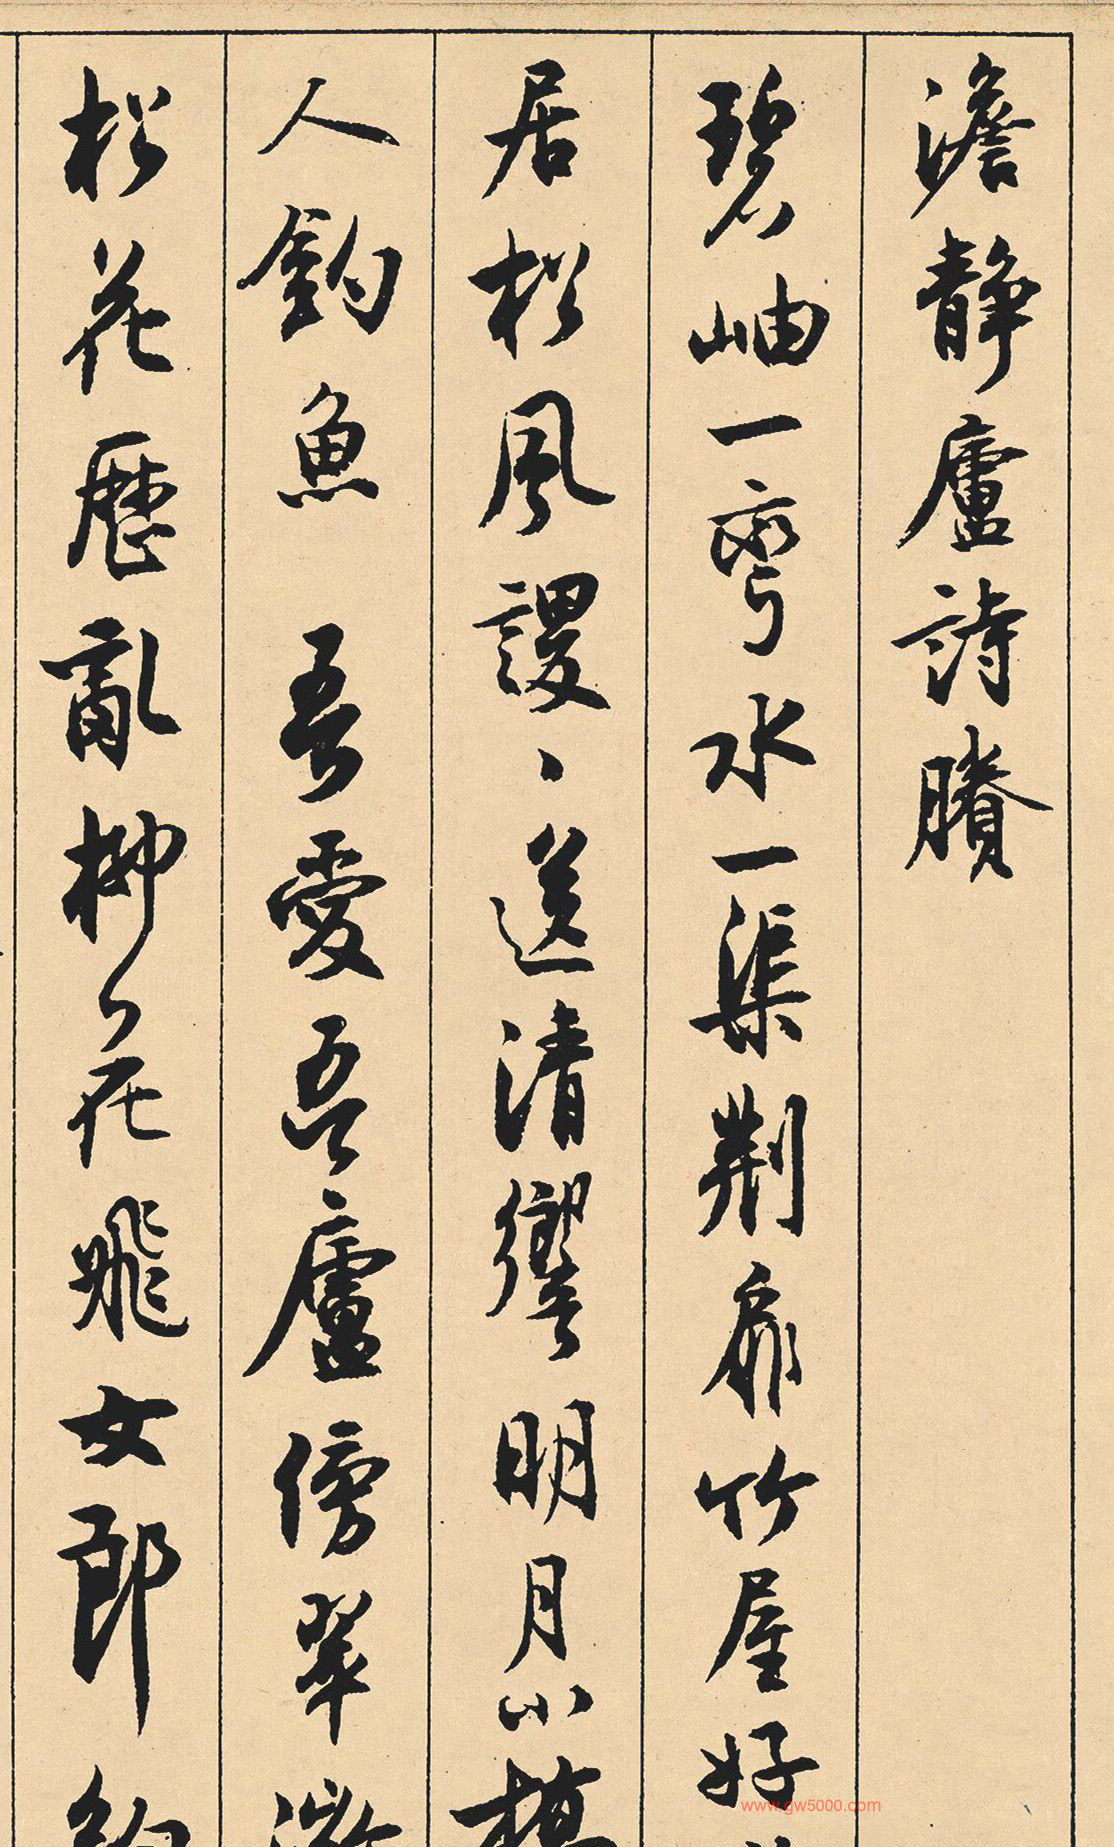 澹静廬詩賸
碧岫一彎水一渠荆扉竹屋好
居松風謖、送清響明月小
人釣魚 吾愛吾廬傍翠
松花歷亂柳花飛女郎
www.gw5000.com